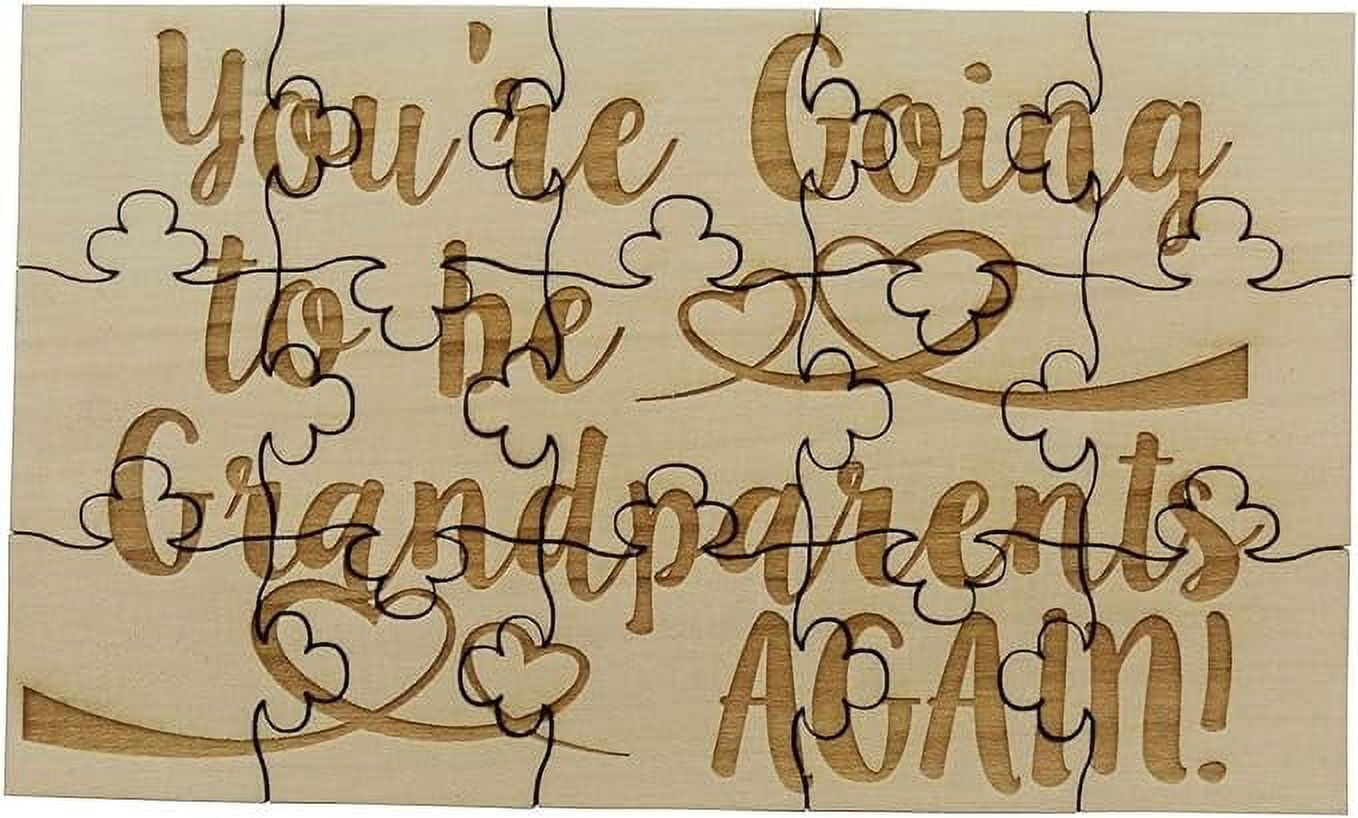 You're Going
to be
Grandparents
AGAIN!